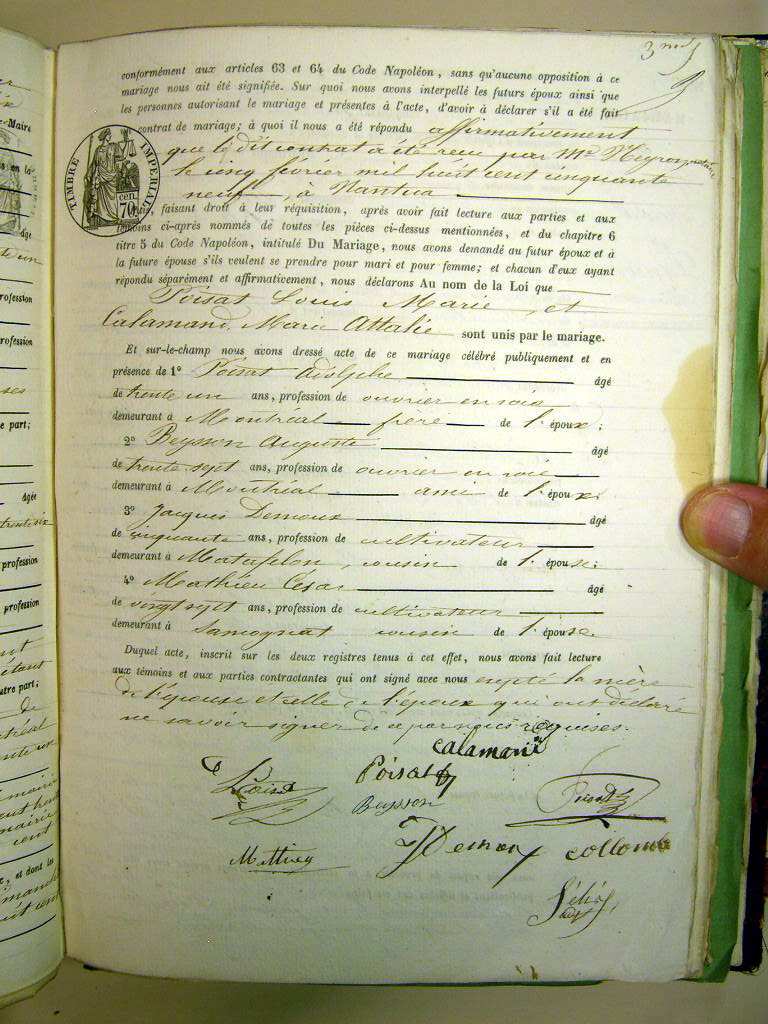 3me
conformément aux articles 63 et 64 du Code Napoléon, sans qu'aucune opposition à ce
mariage nous ait été signifiée. Sur quoi nous avons interpellé les futurs époux ainsi que
les personnes autorisant le mariage et présentes à l'acte, d'avoir à déclarer s'il a été fait
contrat de mariage; à quoi il nous a été répondu affirmativement
que le dit contrat a été recu par Me notaire
le cinq février mil huit cent cinquante
neuf, à Nantua
TIMBRE IMPERIAL
70 cen.
Puis, faisant droit à leur réquisition, après avoir fait lecture aux parties et aux
témoins ci-après nommés de toutes les pièces ci-dessus mentionnées, et du chapitre 6
titre 5 du Code Napoléon, intitulé Du Mariage, nous avons demandé au futur époux et à
la future épouse s'ils veulent se prendre pour mari et pour femme; et chacun d'eux ayant
répondu séparément et affirmativement, nous déclarons Au nom de la Loi que
Poisat Louis Marie, et
Calamand Marie Attalie sont unis par le mariage.
Et sur-le-champ nous avons dressé acte de ce mariage célébré publiquement et en
présence de 1° Poisat Adolphe âgé
de trente un ans, profession de ouvrier en soie
demeurant à Montréal frère de l'époux;
2° Beysson Auguste âgé
de trente sept ans, profession de ouvrier en soie
demeurant à Montréal ami de l'époux
3° Jacques Demoux âgé
de cinquante ans, profession de cultivateur
demeurant à Matafelon, cousin de l'épouse;
4° Mathieu César âgé
de vingt sept ans, profession de cultivateur
demeurant à Samognat cousin de l'épouse.
Duquel acte, inscrit sur les deux registres tenus à cet effet, nous avons fait lecture
aux témoins et aux parties contractantes qui ont signé avec nous excepté la mère
de l'épouse et celle de l'époux qui ont déclaré
ne savoir signer de ce par nous requises.
Calamand
Poisat
Poisat
Beysson
Demoux
Collomb